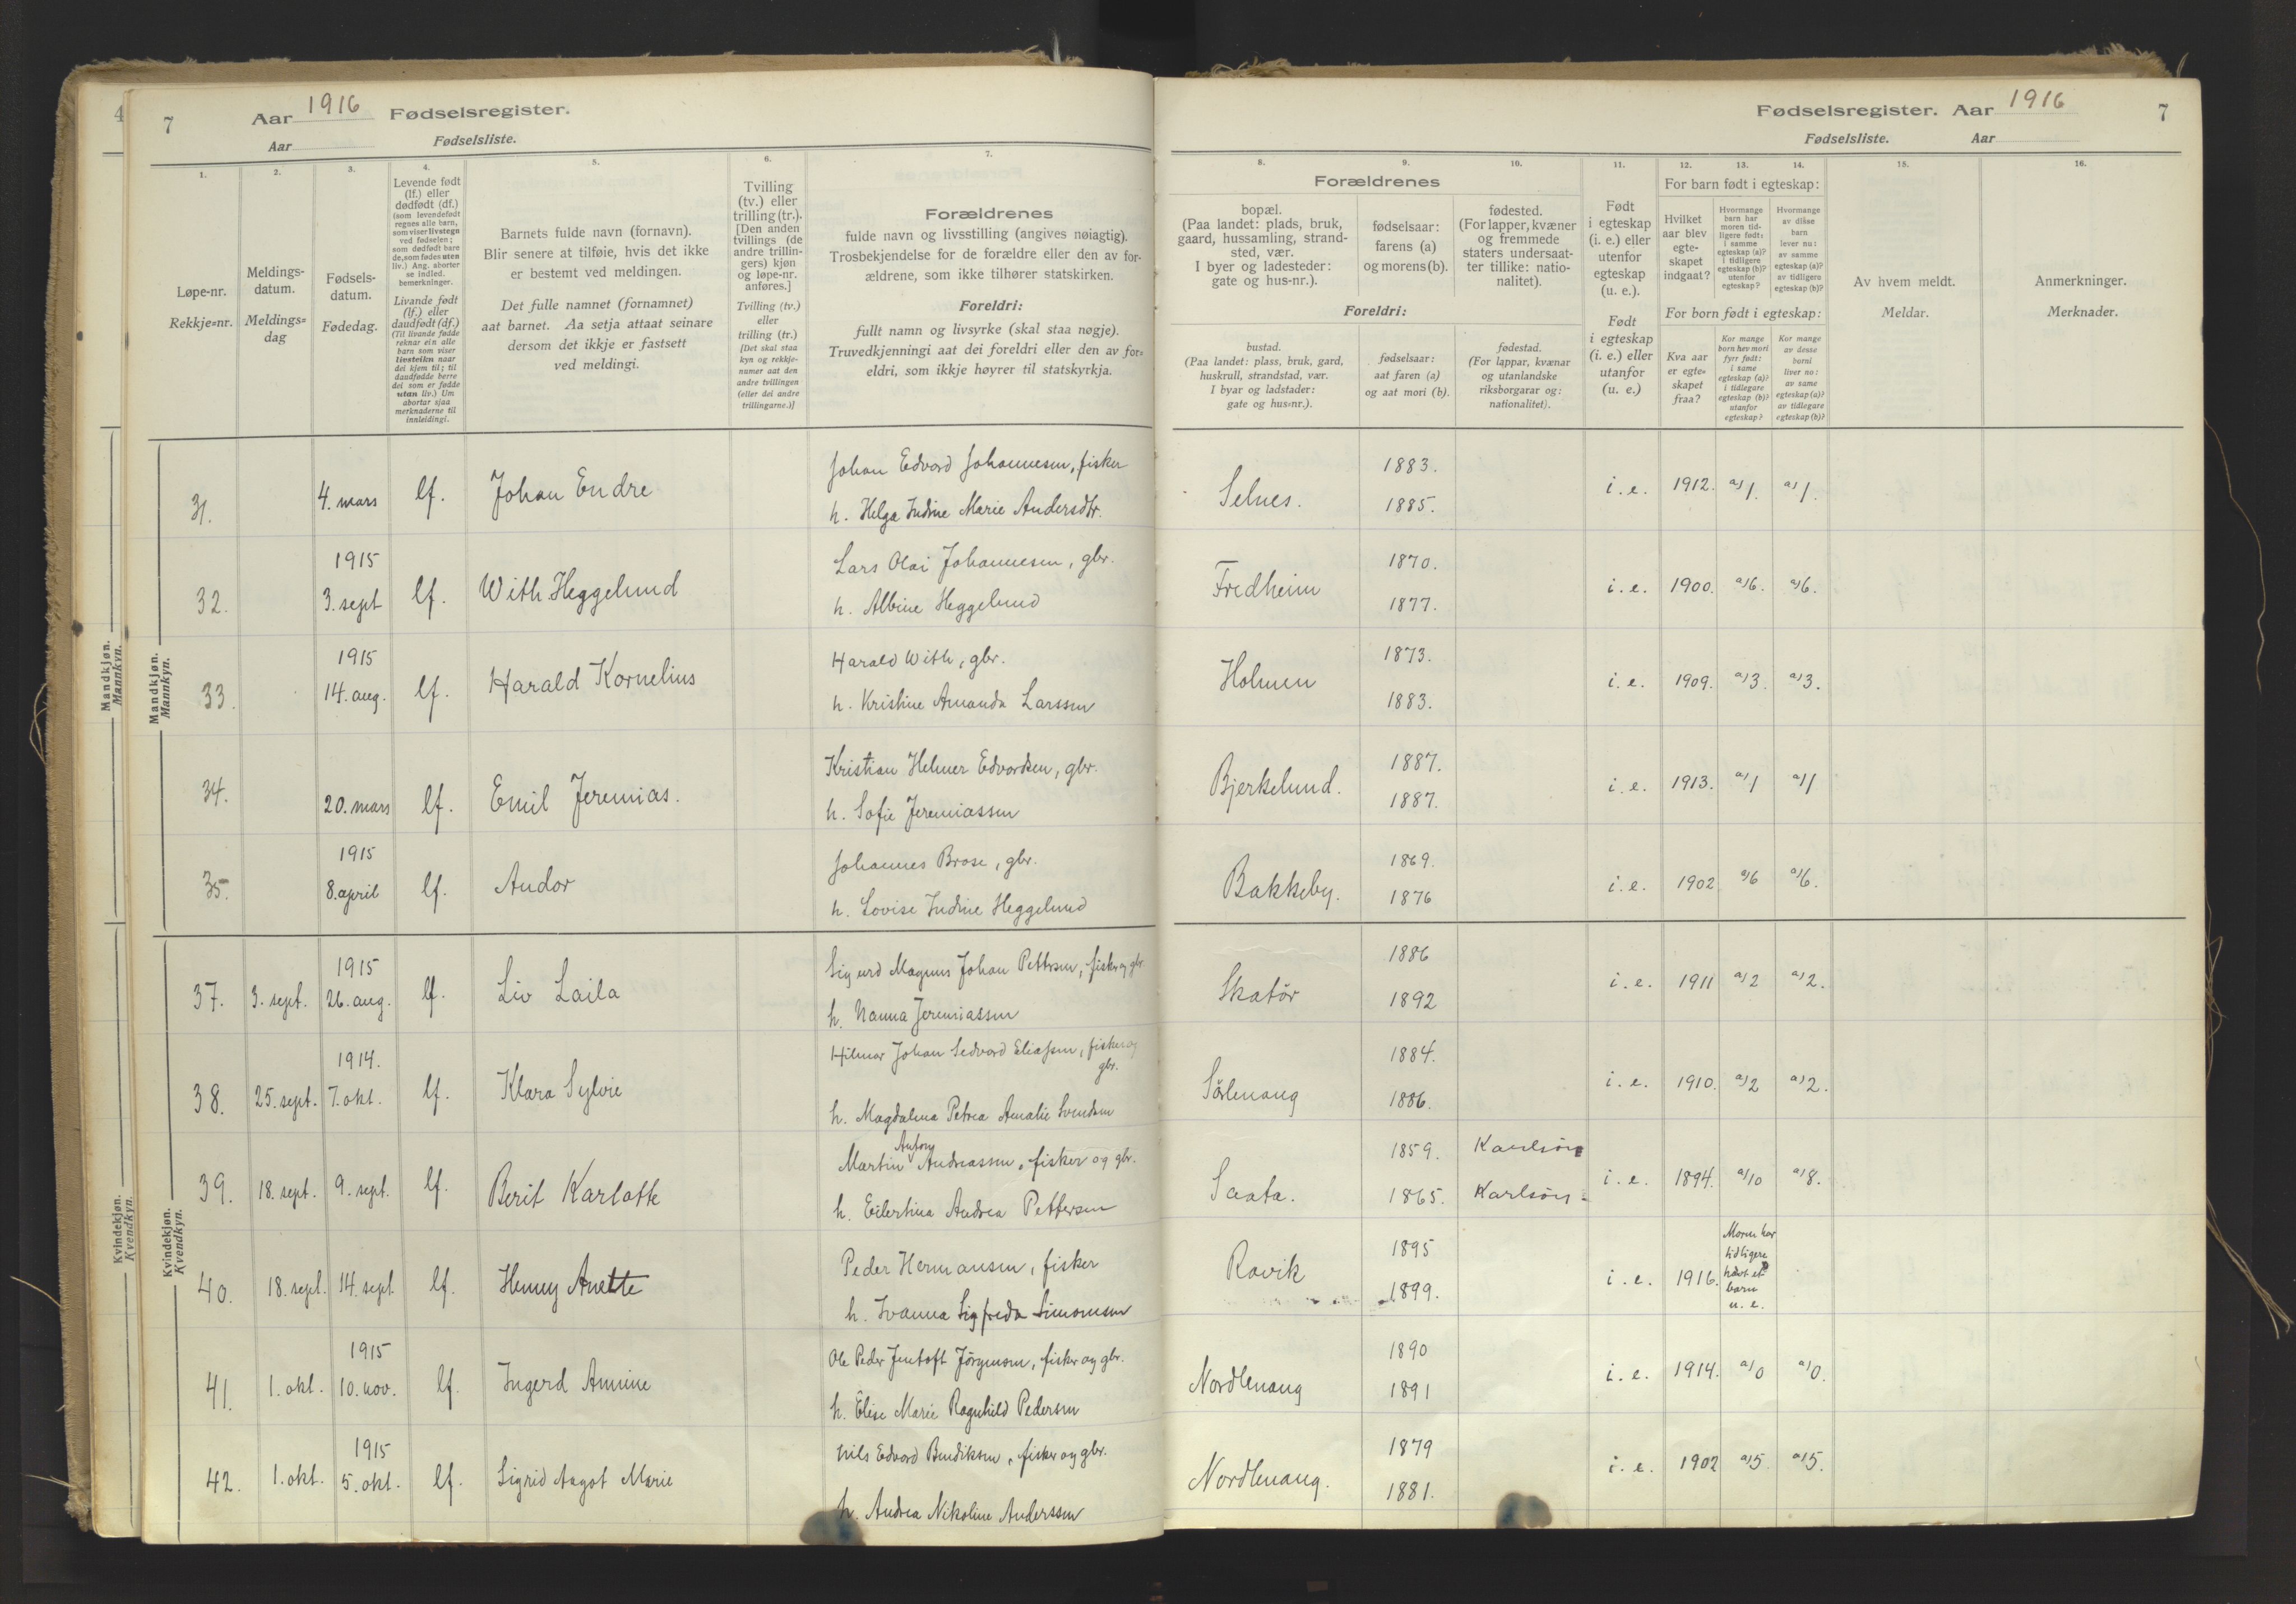 7 Aar 1916 Fødselsregister.
Aar Fødselsliste.
1.
Løpe-nr.
Rekkje=nr.
2.
Meldings-
datum.
Meldings=
dag
3.
Fødsels-
datum.
Fødedag.
4.
Levende født
(lf.) eller
dødfødt (df.)
(som levendefødt
regnes alle barn,
som viser livstegn
ved fødselen;
som dødfødt bare
de, som fødes uten
liv.) Ang. aborter
se indled.
bemerkninger.
Livande født
(lf.) eller
daudfødt (df.)
(Til livande fødde
reknar ein alle
barn som viser
livsteikn naar
dei kjem til; til
daudfødde berre
dei som er fødde
utan liv.) Um
abortar sjaa
merknaderne til
innleidingi.
5.
Barnets fulde navn (fornavn).
Blir senere at tilføie, hvis det ikke
er bestemt ved meldingen.
Det fulle namnet (fornamnet)
aat barnet. Aa setja attaat seinare
dersom det ikkje er fastsett
ved meldingi.
6.
Tvilling
(tv.) eller
trilling (tr.).
[Den anden
tvillings (de
andre trillin-
gers) kjøn
og løpe-nr.
anføres.]
Tvilling (tv.)
eller
trilling (tr.)
[Det skal staa
kyn og rekkje-
numer aat den
andre tvillingen
(eller dei andre
trillingarne.)]
7.
Forældrenes
fulde navn og livsstilling (angives nøiagtig).
Trosbekjendelse for de forældre eller den av for-
ældrene, som ikke tilhører statskirken.
Foreldri:
fullt namn og livsyrke (skal staa nøgje).
Truvedkjenningi aat dei foreldri eller den av for=
eldri, som ikkje høyrer til statskyrkja.
Mandkjøn.
Mannkyn.
31. 4. mars lf. Johan Endre
Johan Edvard Johannesen, fisker
h. Helga Indine Marie Andersdtr.
32. 1915
3. sept lf. With Heggelund
Lars Olai Johannesen, gbr.
h. Albine Heggelund
33. 1915
14. aug. lf. Harald Kornelius
Harald With, gbr.
h. Kristine Amanda Larssen
34. 20. mars lf. Emil Jeremias.
Kristian Helmer Edvardsen, gbr.
h. Sofie Jeremiassen
35. 1915
8. april lf. Andor
Johannes Brose, gbr.
h. Lovise Indine Heggelund
Kvindekjøn.
Kvendkyn.
37. 3. sept. 1915
26. aug. lf. Liv Laila
Sigurd Magnus Johan Pettersen, fisker og gbr
h. Nanna Jeremiassen
38. 25. sept. 1914.
7. okt. lf. Klara Sylvie
Hilmar Johan Sedvard Eliassen, fisker og
gbr.
h. Magdalena Petrea Amalie Svendsen
39. 18. sept. 9. sept. lf. Berit Karlotte
Antony
Martin Andreassen, fisker og gbr.
h. Eilertina Andrea Pettersen
40. 18. sept. 14. sept. lf. Henny Anette
Peder Hermansen, fisker
h. Ivanna Sigfreda Simonsen
41. 1. okt. 1915
10. nov. lf. Ingerd Annine
Ole Peder Jentoft Jörgensen, fisker og gbr.
h. Elise Marie Ragnhild Pedersen
42. 1. okt. 1915
5. okt. lf. Sigrid Aagot Marie
Nils Edvard Bendiksen, fisker og gbr.
h. Andrea Nikoline Anderssen
Fødselsregister. Aar 1916 7
Fødselsliste. Aar
8.
Forældrenes
bopæl.
(Paa landet: plads, bruk,
gaard, hussamling, strand-
sted, vær.
I byer og ladesteder:
gate og hus-nr.).
9.
fødselsaar:
farens (a)
og morens (b).
10.
fødested.
(For lapper, kvæner
og fremmede
staters undersaat-
ter tillike: natio-
nalitet).
Foreldri:
bustad.
(Paa landet: plass, bruk, gard,
huskrull, strandstad, vær.
I byar og ladstader:
gate og hus=nr.).
fødselsaar:
aat faren (a)
og aat mori (b).
fødestad.
(For lappar, kvænar
og utanlandske
riksborgarar og:
nationalitet).
11.
Født
i egteskap
(i. e.) eller
utenfor
egteskap
(u. e.).
Født
i egteskap
(i. e.) eller
utanfor
(u. e.)
12. 13. 14.
For barn født i egteskap:
Hvilket
aar blev
egte-
skapet
indgaat?
Hvormange
barn har
moren tid-
ligere født:
i samme
egteskap (a)?
i tidligere
egteskap (b)?
utenfor
egteskap?
Hvormange
av disse
barn
lever nu:
av samme
egteskap (a)?
av tidligere
egteskap (b)?
For born født i egteskap:
Kva aar
er egte=
skapet
fraa?
Kor mange
born hev mori
fyrr født:
i same
egteskap (a)?
i tidlegare
egteskap (b)?
utanfor
egteskap?
Kor mange
av desse
borni
liver no:
av same
egteskap (a)?
av tidlegare
egteskap (b)?
15.
Av hvem meldt.
Meldar.
16.
Anmerkninger.
Merknader.
Selnes. 1883.
1885. i. e. 1912. a)1. a)1.
Fredheim 1870.
1877. i. e. 1900. a)6. a)6.
Holmen 1873.
1883. i. e. 1909. a)3. a)3.
Bjerkelund. 1887.
1887. i. e. 1913. a)1 a)1
Bakkeby. 1869.
1876 i. e. 1902 a)6 a)6.
Skatör 1886
1892 i. e. 1911 a)2 a)2.
Sörlenang 1884.
1886. i. e. 1910. a)2 a)2.
Saata. 1859. Karlsöy
1865. Karlsöy i. e. 1894. a)10 a)8.
Ravik 1895
1899. i. e. 1916.
Moren har
tidligere
havt et
barn
u. e.
Nordlenang 1890
1891 i. e. 1914. a)0 a)0.
Nordlenang. 1879
1881. i. e. 1902 a)5. a)5.